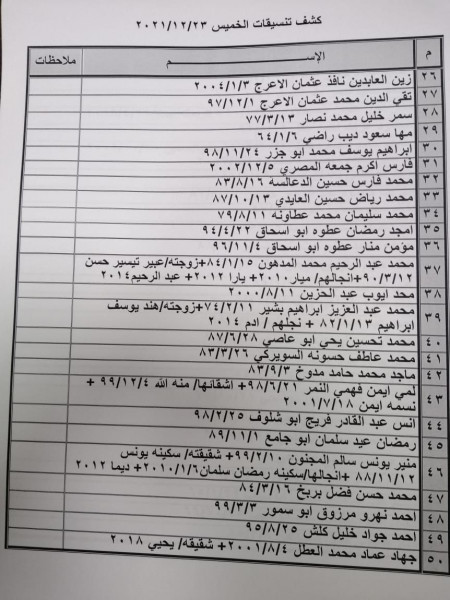 كشف تنسيقات الخميس ٢٠٢١/١٢/٢٣
م الإســـم ملاحظات
٢٦ زين العابدين نافذ عثمان الاعرج ٢٠٠٤/١/٣
٢٧ تقي الدين محمد عثمان الاعرج ٩٧/١٢/١
٢٨ سمر خليل محمد نصار ٧٧/٣/١٣
٢٩ مها سعود ديب راضي ٦٤/١/٦
٣٠ ابراهيم يوسف محمد ابو جزر ٩٨/١١/٢٤
٣١ فارس اكرم جمعه المصري ٢٠٠٢/١٢/٥
٣٢ محمد فارس حسين الدعالسه ٨٣/٨/١٦
٣٣ محمد رياض حسين العايدي ٨٧/١٠/١٣
٣٤ محمد سليمان محمد عطاونه ٧٩/٨/١١
٣٥ امجد رمضان عطوه ابو اسحاق ٩٤/٤/٢٢
٣٦ مؤمن منار عطوه ابو اسحاق ٩٦/١١/٤
٣٧ محمد عبد الرحيم محمد المدهون ٨٤/١/١٥+زوجته/عبير تيسير حسن
٩٠/٣/١٢+انجالهم/ ميار٢٠١٠+ يارا ٢٠١٢+ عبد الرحيم٢٠١٤
٣٨ محد ايوب عبد الحزين ٢٠٠٠/٨/١١
٣٩ محمد عبد العزيز ابراهيم بشير ٧٤/٢/١١+زوجته/هند يوسف
ابراهيم ٨٢/١/١٣ + نجلهم / ادم ٢٠١٤
٤٠ محمد تحسين يحي ابو عاصي ٨٧/٦/٢٨
٤١ محمد عاطف حسونه السويركي ٨٣/٣/٢٦
٤٢ ماجد محمد حامد مدوخ ٨٣/٩/٣
٤٣ لمي ايمن فهمي النمر ٩٨/٦/٢١+ اشقائها/ منه الله ٩٩/١٢/٤ +
نسمه ايمن ٢٠٠١/٧/١٨
٤٤ انس عبد القادر فريج ابو شلوف ٩٨/٢/٢٥
٤٥ رمضان عيد سلمان ابو جامع ٨٩/١١/١
٤٦ منير يونس سالم المجنون ٩٩/٢/١٠+ شقيقته/ سكينه يونس
٨٨/١١/١٢ +انجالها/سكينه رمضان سلمان٢٠١٠/١/٦+ ديما ٢٠١٢
٤٧ محمد حسن فضل بريخ ٨٤/٣/١٦
٤٨ احمد نهرو مرزوق ابو سمور ٩٩/٣/٣
٤٩ احمد جواد خليل كلش ٩٥/٨/٢٥
٥٠ جهاد عماد محمد العطل ٢٠٠١/٨/٤+ شقيقه/ يحيي ٢٠١٨